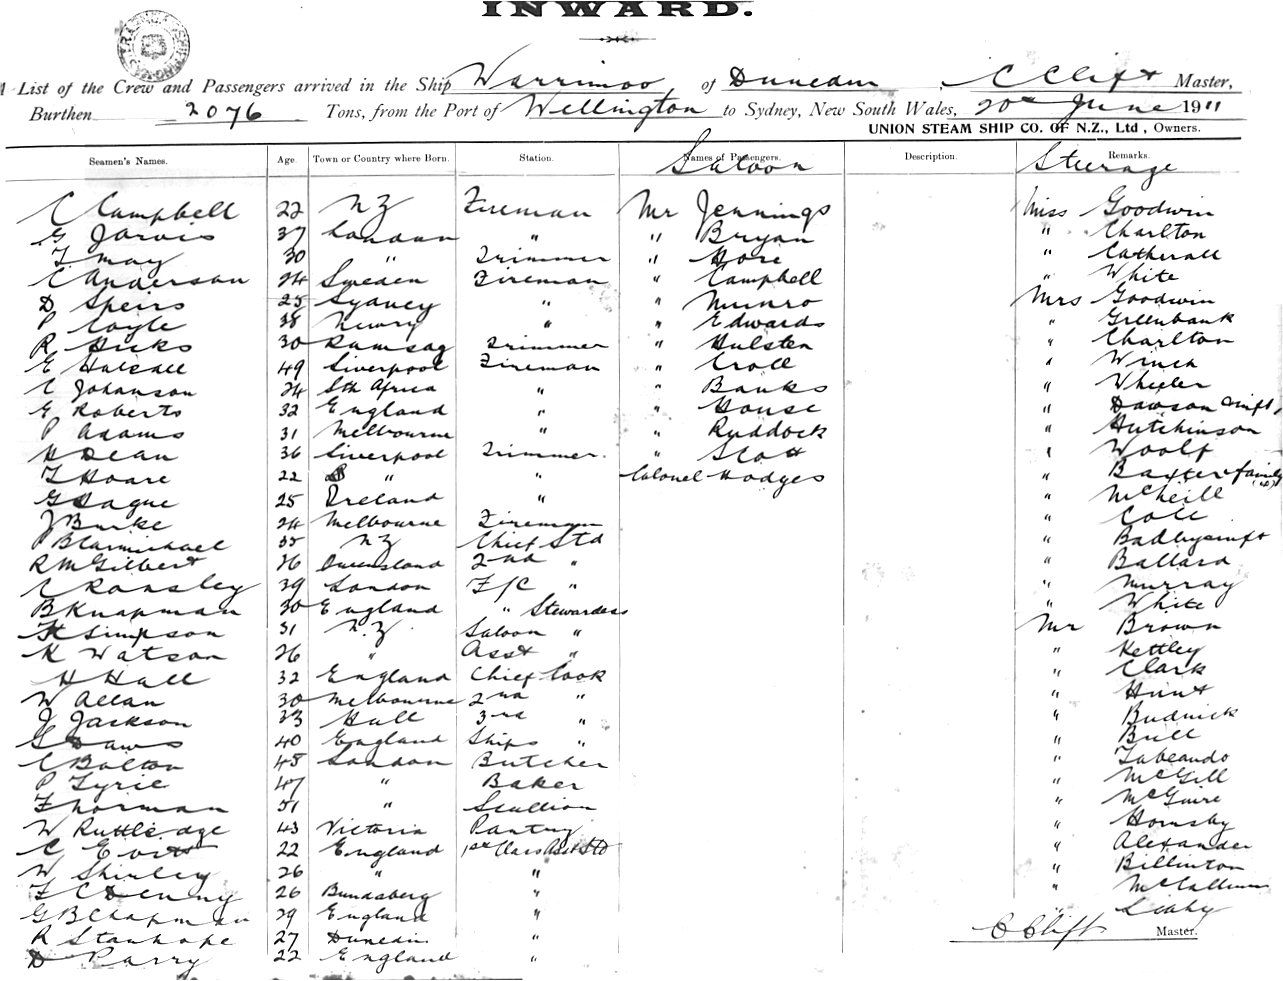 INWARD.
A List of the Crew and Passengers arrived in the Ship Warrimoo of Dunedin, C Clift Master,
Burthen 2076 Tons, from the Port of Wellington to Sydney, New South Wales, 20th June 1911
UNION STEAM SHIP CO. OF N.Z., Ltd, Owners.
Seamen's Names. Age. Town or Country where Born. Station. Names of Passengers. Description. Remarks.
Saloon Steerage
C Campbell 22 NZ Fireman Mr Jennings Miss Goodwin
G Jarvis 37 London " " Bryan " Charlton
F May 30 " Trimmer " Hore " Catherall
C Anderson 24 Sweden Fireman " Campbell " White
D Speirs 25 Sydney " " Munro Mrs Goodwin
P Coyle 38 Newry " " Edwards " Greenbank
R Hicks 30 Ramsay Trimmer " Hulsten " Charlton
E Halsall 49 Liverpool Fireman " Croll " Winch
C Johanson 24 Sth Africa " " Banks " Wheeler
E Roberts 32 England " " House " Dawson & inft,
P Adams 31 Melbourne " " Ruddock " Hutchinson
H Dean 36 Liverpool Trimmer. " Scott " Woolf
F Hoare 22 " " Colonel Hodges " Baxter & family
G Hague 25 Ireland " " McNeill
J Burke 24 Melbourne Fireman " Cole
P B Carmichael 35 NZ Chief Std " Badby & inft
R McGilbert 26 Queensland 2nd " " Ballard
C Ransley 39 London F/C " " Murray
B Knapman 30 England " Stewardess " White
H Simpson 31 N.Z. Saloon " Mr Brown
K Watson 26 " Asst " " Kettley
H Hall 32 England Chief Cook " Clark
W Allan 30 Melbourne 2nd " " Hunt
J Jackson 33 Hull 3rd " " Budnick
G Daws 40 England Ships " " Bull
C Bolton 45 London Butcher "
P Fyrie 47 " Baker " McGill
F Norman 51 " Scullion " McGuire
W Ruttledge 43 Victoria Pantry " Hornsby
C Evitt 22 England 1st Class Asst Std " Alexander
W Shirley 26 " " " Billinton
F C Denny 26 Bundaberg " " McCallum
G B Chapman 29 England " " Leahy
R Stanhope 27 Dunedin " C Clift Master.
D Parry 22 England "